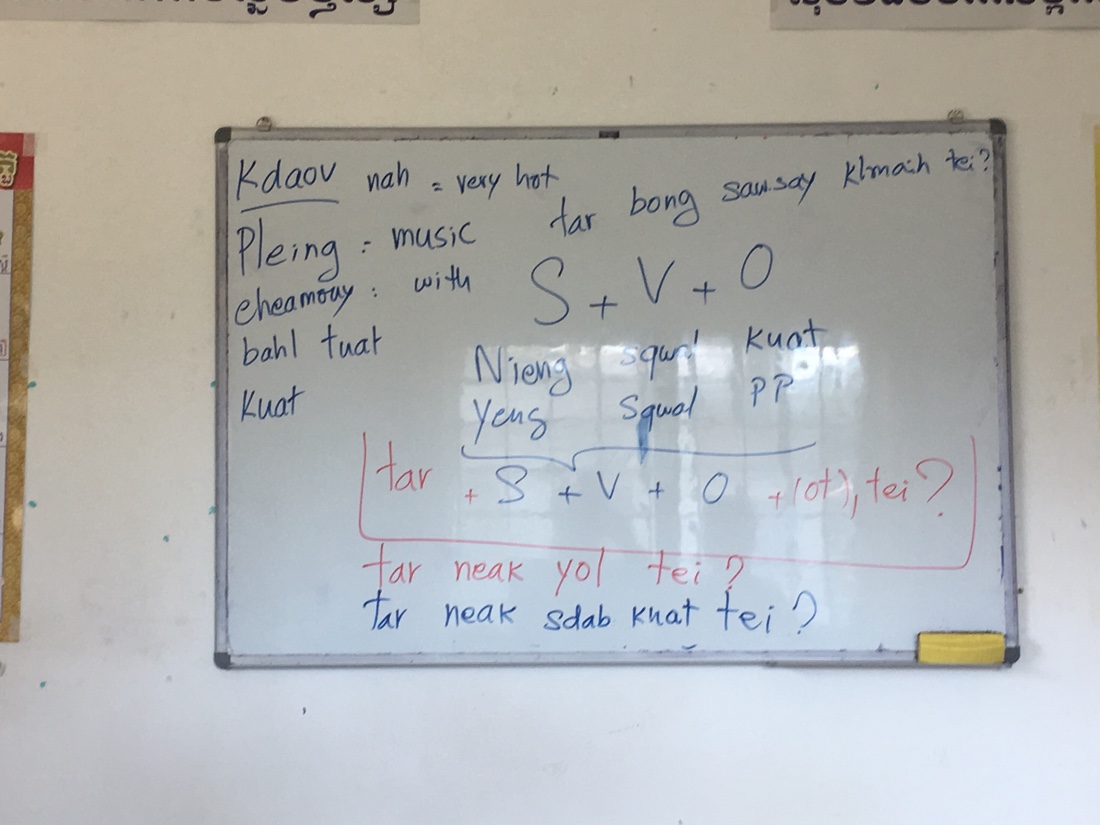 Kdaov nah = very hot
tar bong sausay klmaih tei?
Pleing = music
cheamouy : with
S + V + O
bahl tuat
Nieng squal kuat
Kuat
Yeng squal PP
tar + S + V + O + (ot), tei?
tar neak yol tei?
tar neak sdab kuat tei?